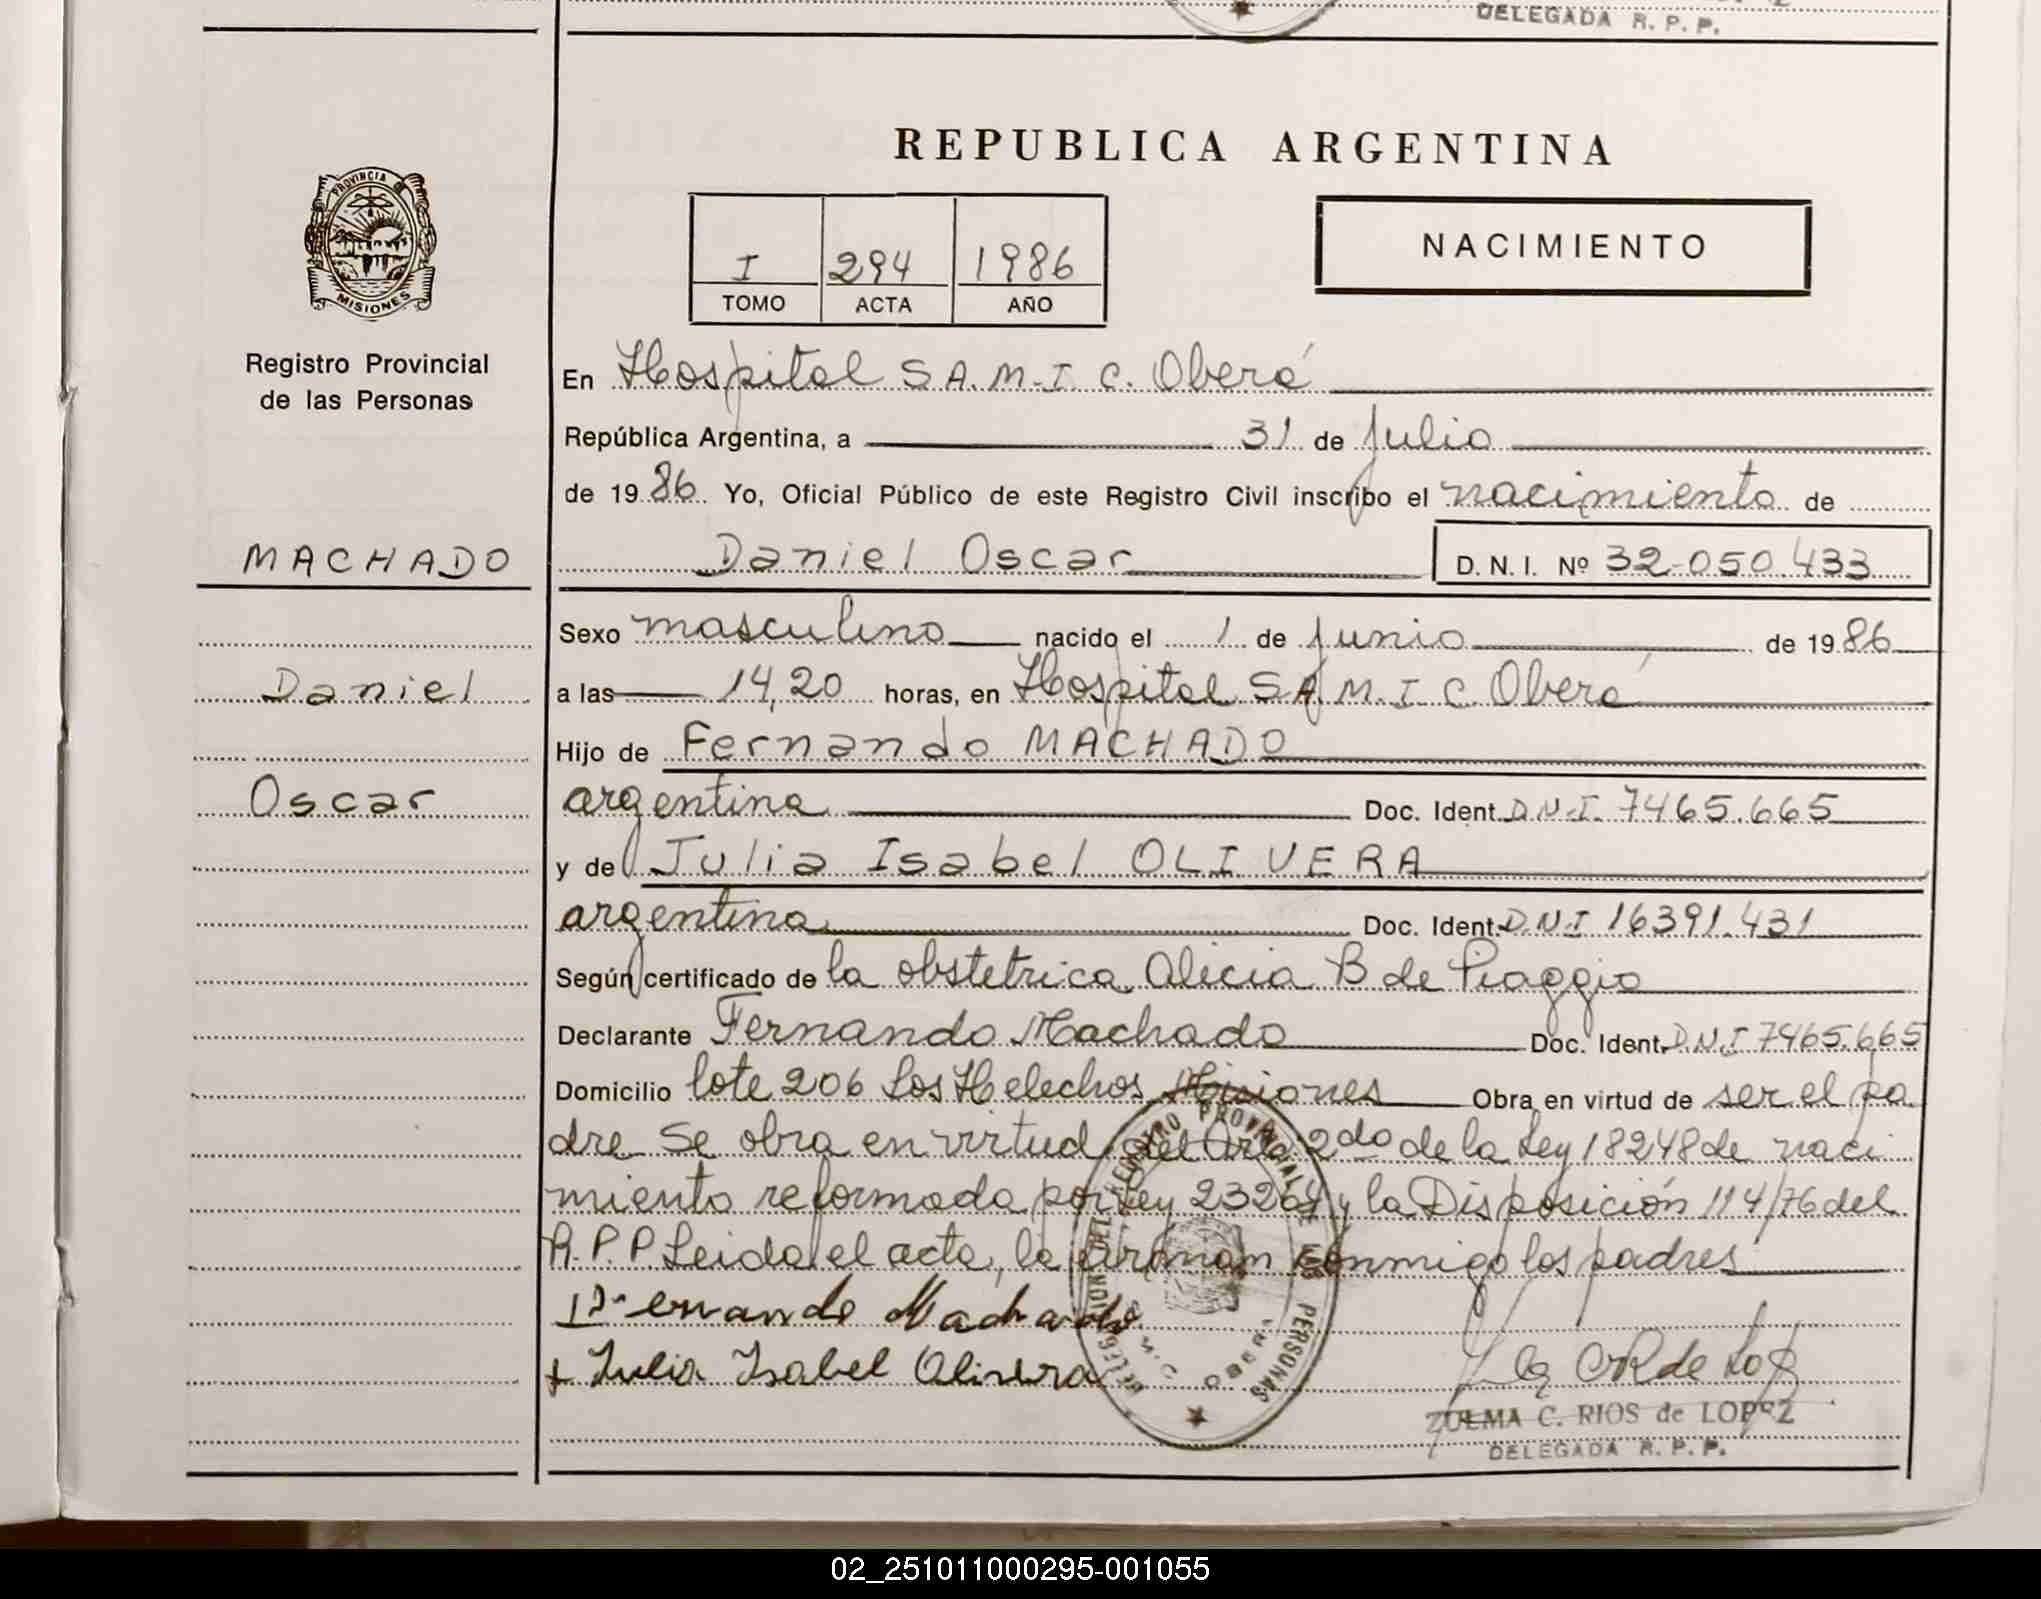 DELEGADA R. P. P.
REPUBLICA ARGENTINA
PROVINCIA DE
MISIONES
Registro Provincial
de las Personas
I 294 1986
TOMO ACTA AÑO
NACIMIENTO
En Hospital S.A.M.I.C. Oberá
República Argentina, a 31 de Julio
de 1986. Yo, Oficial Público de este Registro Civil inscribo el nacimiento de
MACHADO
Daniel Oscar D. N. I. Nº 32.050.433
Sexo masculino nacido el 1 de Junio de 1986
Daniel
a las 14,20 horas, en Hospital S.A.M.I.C. Oberá
Hijo de Fernando MACHADO
Oscar
argentina Doc. Ident. D.N.I. 7465.665
y de Julia Isabel OLIVERA
argentina Doc. Ident. D.N.I 16391.431
Según certificado de la obstetrica Alicia B de Piaggio
Declarante Fernando Machado Doc. Ident. D.N.I 7465.665
Domicilio lote 206 Los Helechos Misiones Obra en virtud de ser el pa
dre Se obra en virtud del Art. 2do de la Ley 18248 de naci
miento reformada por Ley 23264 y la Disposición 114/76 del
R.P.P Leida el acta, la firman conmigo los padres
Fernando Machado
+ Julia Isabel Olivera
DELEGACION DEL REGISTRO PROVINCIAL DE LAS PERSONAS
OBERA
ZULMA C. RIOS de LOPEZ
DELEGADA R. P. P.
02_251011000295-001055